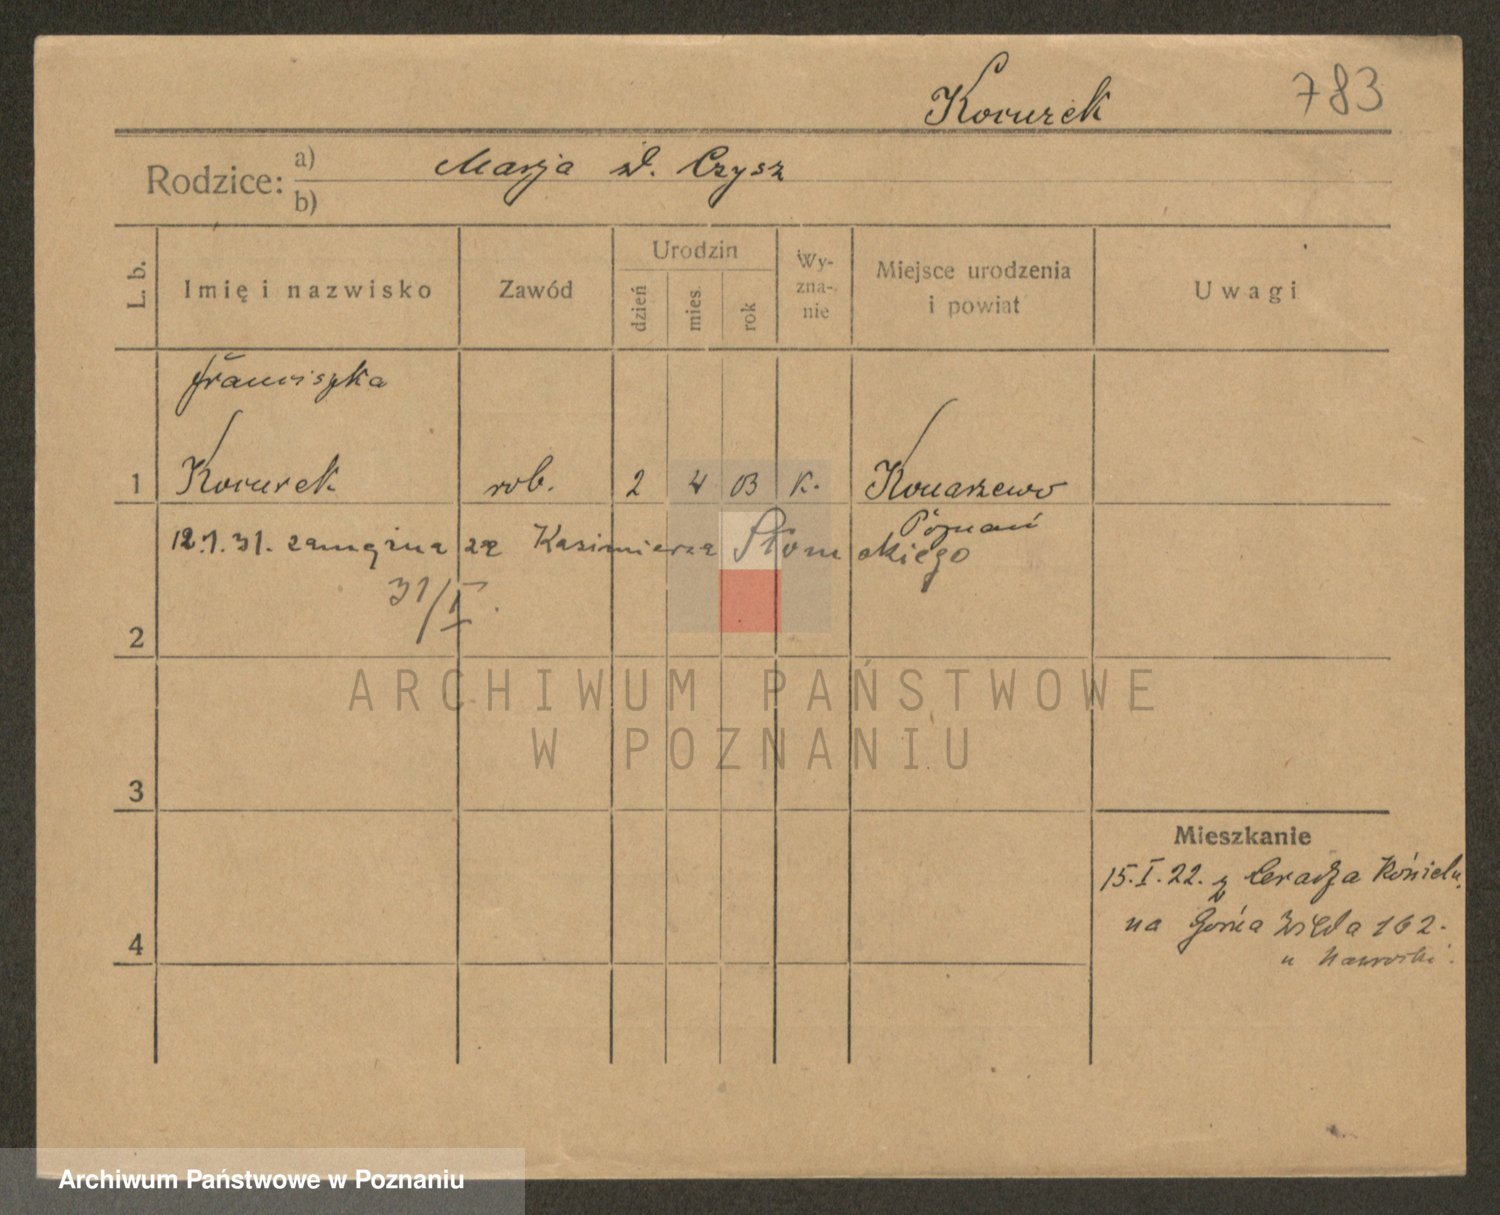 Kocurek 783
Rodzice: a) Marja d. Czysz
b)
L. b. Imię i nazwisko Zawód Urodzin Wy-zna-nie Miejsce urodzenia i powiat Uwagi
dzień mies. rok
Franciszka
1 Kocurek rob. 2 4 03 K. Konarzewo
Poznań
12.1.31. zamężna za Kazimierza Słomskiego
31/I.
2
ARCHIWUM PAŃSTWOWE
W POZNANIU
3
Mieszkanie
15.I.22. z Ceradza Kościeln.
na Górna Wilda 162.
4
u Nawrocki.
Archiwum Państwowe w Poznaniu